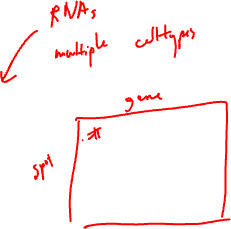 RNAs
multiple celltypes
gene
spot
#